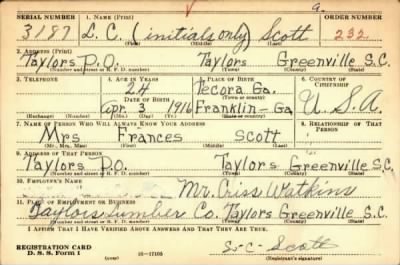 SERIAL NUMBER 1. NAME (Print) a. ORDER NUMBER
3187 L.C. (initials only) Scott 232
(First) (Middle) (Last)
2. ADDRESS (Print)
Taylors P.O. Taylors Greenville S.C.
(Number and street or R. F. D. number) (Town) (County) (State)
3. TELEPHONE 4. AGE IN YEARS 5. PLACE OF BIRTH 6. COUNTRY OF CITIZENSHIP
24 Tecora Ga.
DATE OF BIRTH (Town or county)
Apr. 3 1916 Franklin - Ga U.S.A
(Exchange) (Number) (Mo.) (Day) (Yr.) (State or country)
7. NAME OF PERSON WHO WILL ALWAYS KNOW YOUR ADDRESS 8. RELATIONSHIP OF THAT PERSON
Mrs Frances Scott
(Mr., Mrs., Miss) (First) (Middle) (Last)
9. ADDRESS OF THAT PERSON
Taylors P.O. Taylors Greenville S.C.
(Number and street or R. F. D. number) (Town) (County) (State)
10. EMPLOYER'S NAME
Mr. Criss Watkins
11. PLACE OF EMPLOYMENT OR BUSINESS
Taylors Lumber Co. Taylors Greenville S.C.
(Number and street or R. F. D. number) (Town) (County) (State)
I AFFIRM THAT I HAVE VERIFIED ABOVE ANSWERS AND THAT THEY ARE TRUE.
REGISTRATION CARD
D. S. S. Form 1 (over) 16—17105 Scott
(Registrant's signature)